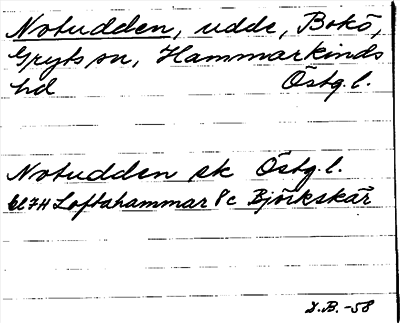 Notudden, udde, Bokö,
Gryts sn, Hammarkinds
hd Östg.l.
Notudden sk Östg.l.
bl7H Loftahammar 8c Björkskär
J.B.-58